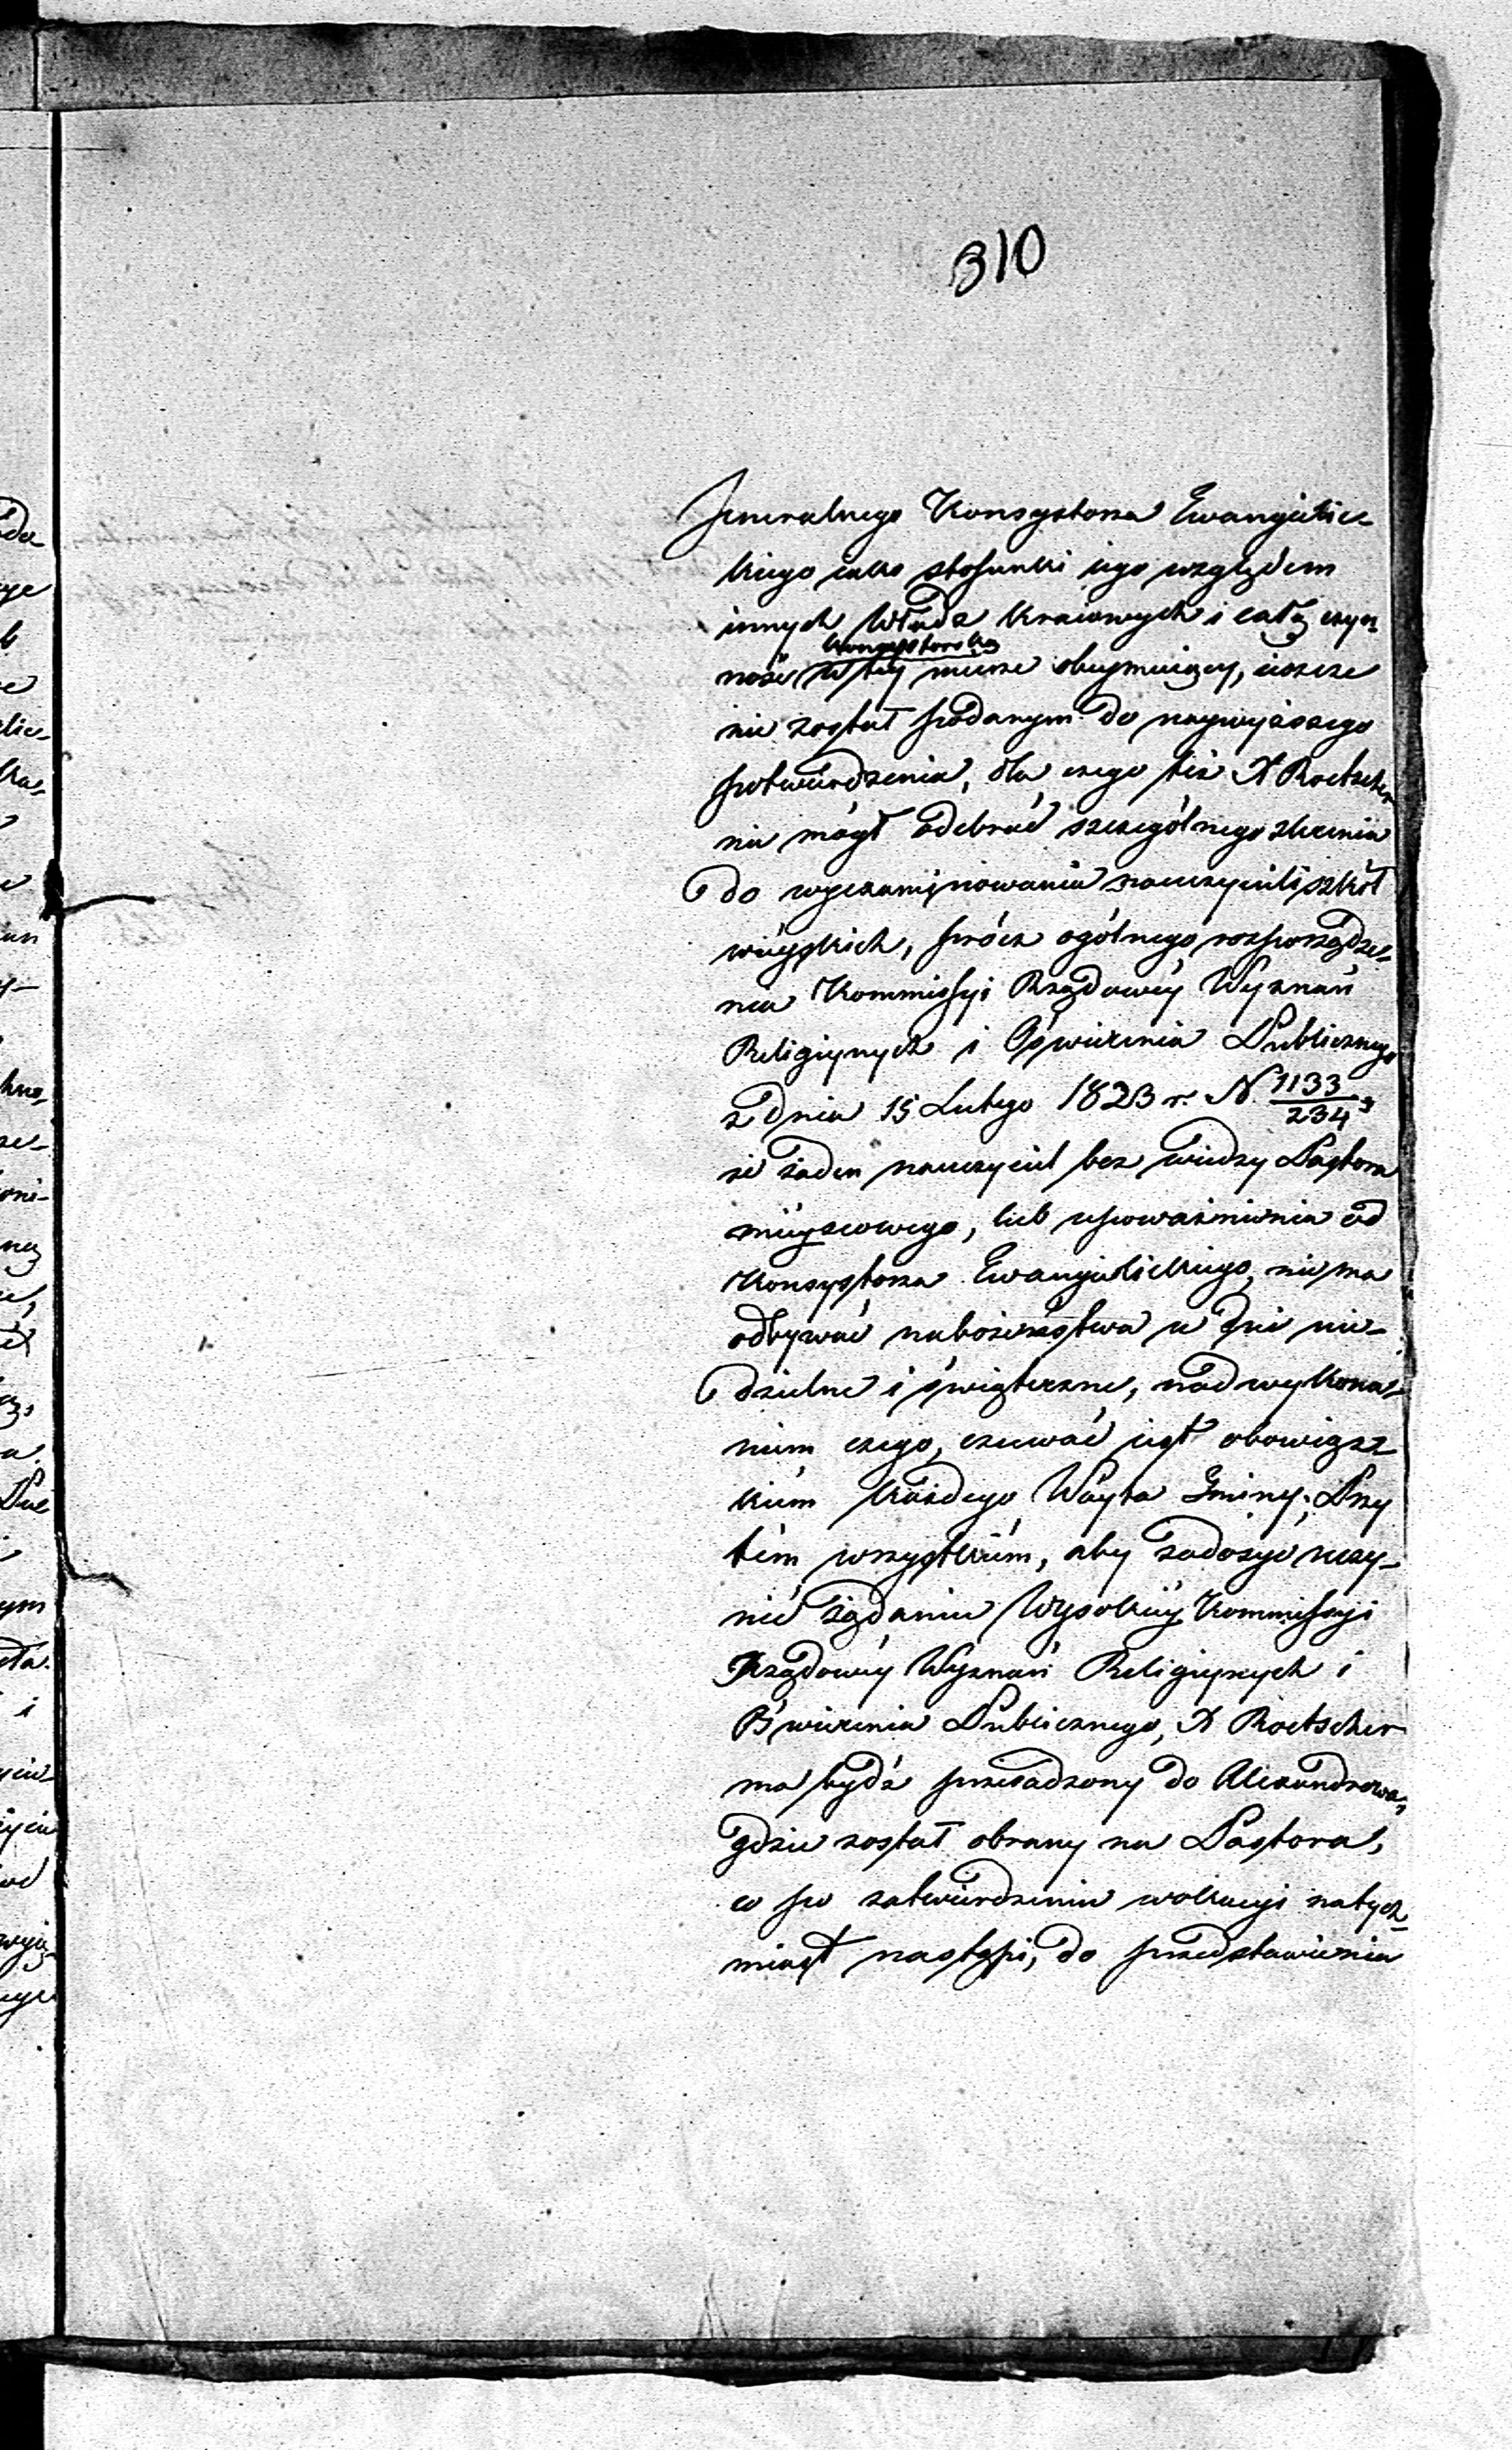 310
Jeneralnego Konsystorza Ewangielic=
kiego iako stosunki iego względem
innych Władz Kraiowych i całą czyn=
Konsystorską
ność w tey mierze obeymuiący, ieszcze
nie został podanym do naywyższego
potwierdzenia, dla czego też X Roetscher
nie mógł odebrać szczególnego zlecenia
do wyexaminowania nauczycieli szkół
wieyskich, prócz ogólnego rozporządze=
nia Kommissyi Rządowéy Wyznań
Religiynych i Oświecenia Publicznego
z dnia 15 Lutego 1823 r. N. 1133/234,
że żaden nauczyciel bez wiedzy Pastora
mieyscowego, lub upoważnienia od
Konsystorza Ewangielickiego, nie ma
odbywać nabożeństwa w dni nie=
dzielne i świąteczne, nad wykona=
niem czego, czuwać iest obowiąz=
kiem każdego Wóyta Gminy; Przy
tém wszystkiém, aby zadosyć uczy=
nić żądaniu Wysokiéy Kommissyi
Rządowéy Wyznań Religiynych i
Oświecenia Publicznego, X Roetscher
ma bydź przesadzony do Alexandrowa,
gdzie został obrany na Pastora,
co po zatwierdzeniu wokacyi natych=
miast nastąpi, do przedstawienia